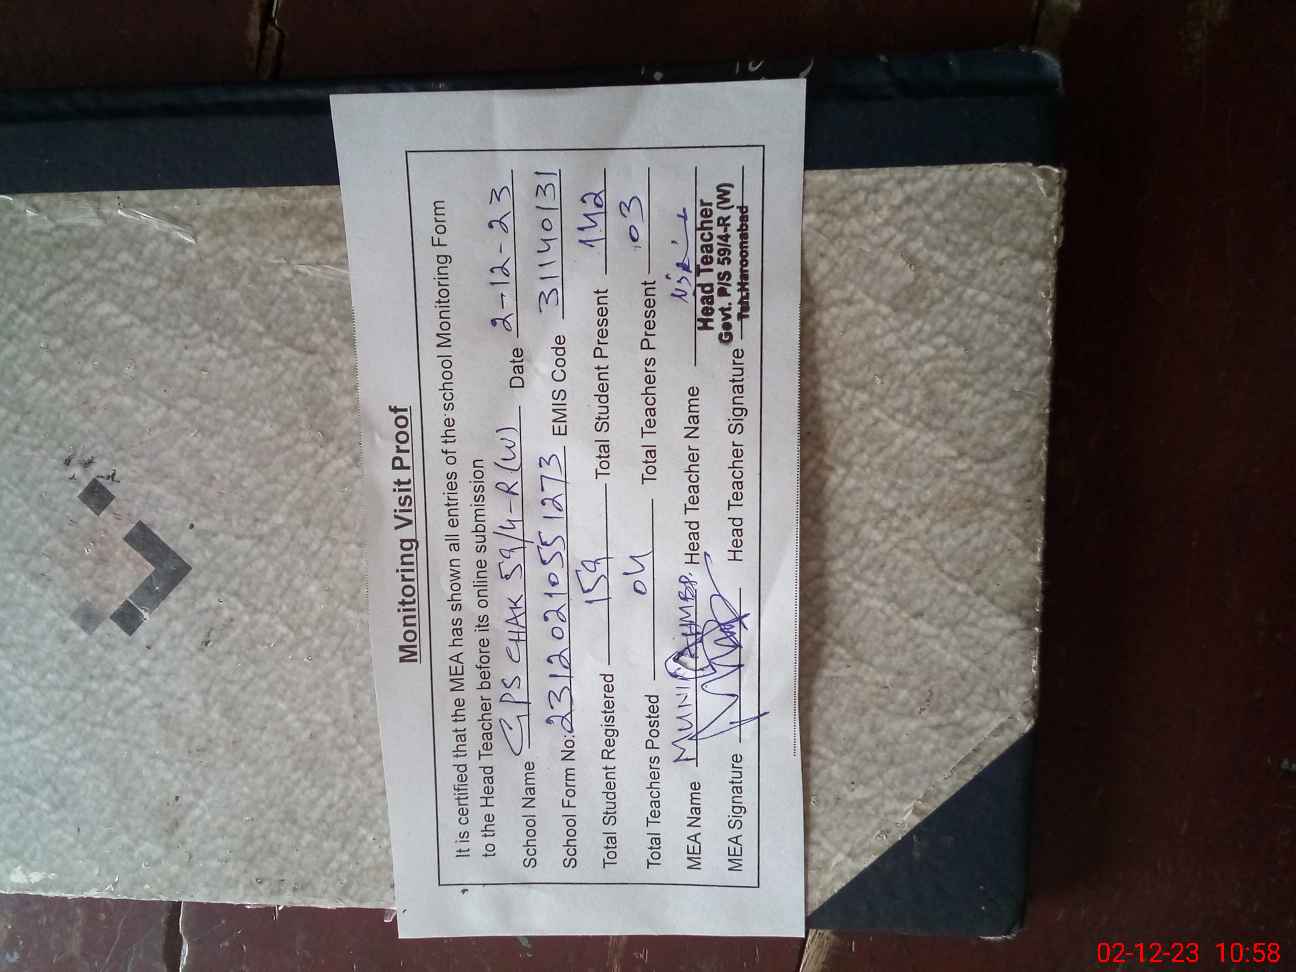 Monitoring Visit Proof
It is certified that the MEA has shown all entries of the school Monitoring Form
to the Head Teacher before its online submission
School Name GPS CHAK 59/4-R (W) Date 2-12-23
School Form No: 23120210551273 EMIS Code 31140131
Total Student Registered 159 Total Student Present 142
Total Teachers Posted 04 Total Teachers Present 03
MEA Name MUNIR AHMED. Head Teacher Name
Head Teacher
Govt. P/S 59/4-R (W)
Teh.Haroonabad
MEA Signature Head Teacher Signature
02-12-23 10:58